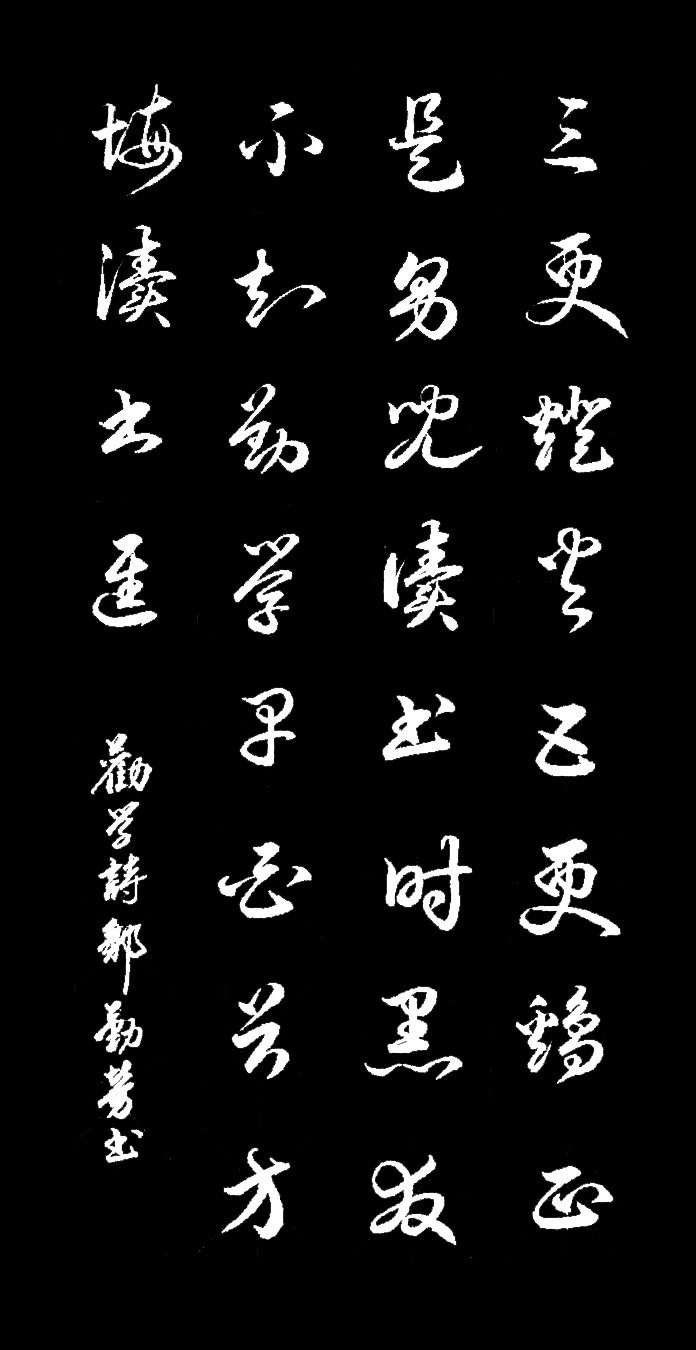 三更燈火五更鷄正
是男兒讀书时黑发
不知勤学早白首方
悔讀书遲
勸学詩鄒勤芳书